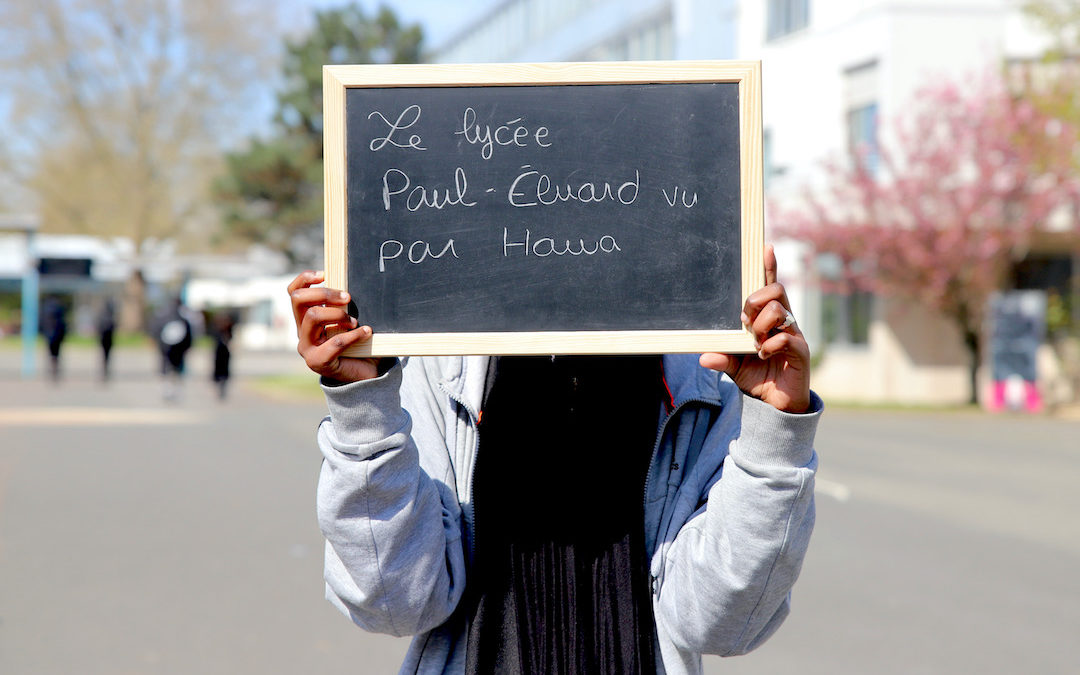 Le lycée
Paul-Éluard vu
par Hawa